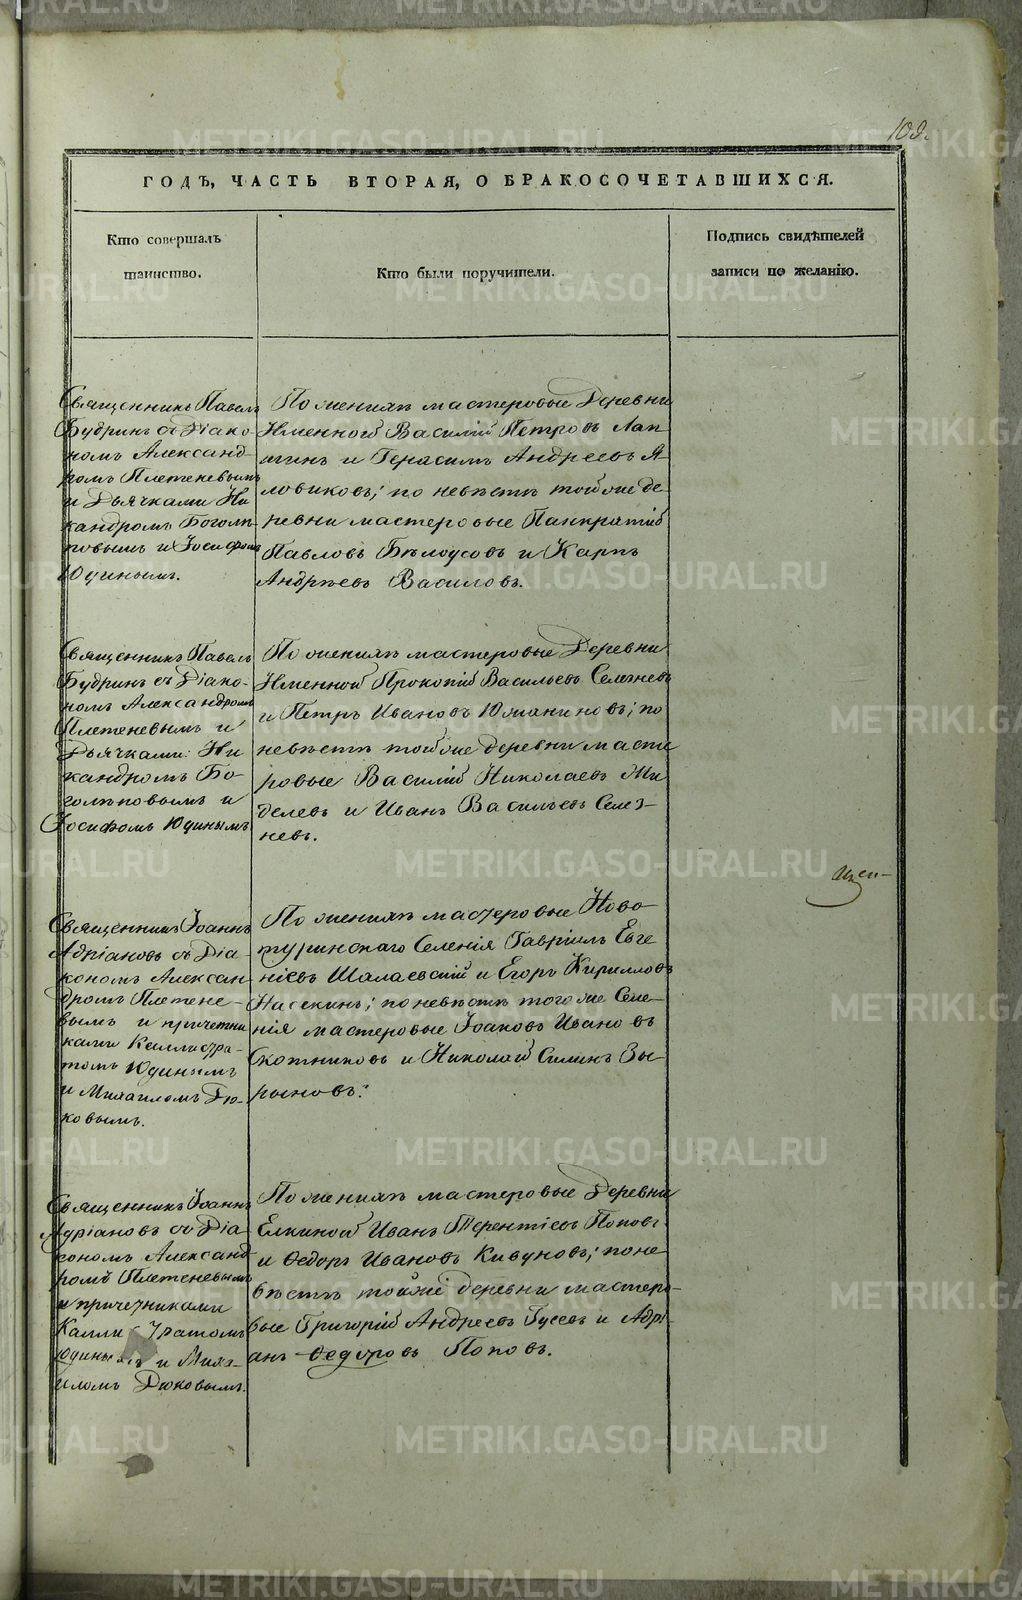 109.
ГОДЪ, ЧАСТЬ ВТОРАЯ, О БРАКОСОЧЕТАВШИХСЯ.
Кто совершалъ
таинство.
Кто были поручители.
Подпись свидѣтелей
записи по желанію.
Священникъ Павелъ
Будринъ съ Діако-
номъ Александ-
ромъ Плетеневымъ
и Дьячками Ни
кандромъ Боголѣ
повымъ и Іосифомъ
Юдинымъ.
По женихѣ мастеровые Деревни
Именной Василій Петровъ Лап
тинъ и Герасимъ Андреевъ Я-
ловиковъ; по невѣстѣ той же де-
ревни мастеровые Панкратій
Павловъ Бѣлоусовъ и Карпъ
Андреевъ Василовъ.
Священникъ Павелъ
Будринъ съ Діако-
номъ Александромъ
Плетеневымъ и
Дьячками: Ни
кандромъ Бо-
голѣповымъ и
Іосифомъ Юдинымъ
По женихѣ мастеровые Деревни
Именной Прокопій Васильевъ Селезневъ
и Петръ Ивановъ Южаниновъ; по
невѣстѣ той же деревни масте
ровые Василій Николаевъ
и Иванъ Васильевъ Селез-
невъ.
Священникъ Іоаннъ
Адріановъ съ Діа-
кономъ Алексан
дромъ Плетене-
вымъ и причетни
ками Каллистра-
томъ Юдинымъ
и Михаиломъ Дю-
ковымъ.
По женихѣ мастеровые Ново
туринскаго Селенія Гавріилъ Евге
ніевъ Шалаевскій и Егоръ Кирилловъ
Насекинъ; по невѣстѣ того же Селе-
нія мастеровые Іоаковъ Ивановъ
Скотниковъ и Николай Силинъ Зы-
ряновъ.
Священникъ Іоаннъ
Адріановъ съ Діа
кономъ Александ
ромъ Плетеневымъ
и причетниками
Каллистратомъ
Юдинымъ и Миха-
иломъ Дюковымъ.
По женихѣ мастеровые Деревни
Елкиной Иванъ Терентіевъ Поповъ
и Ѳедоръ Ивановъ Кивуновъ; по не
вѣстѣ той же деревни мастеро-
вые Григорій Андреевъ Гусевъ и Адрі-
анъ Ѳедоровъ Поповъ.
METRIKI.GASO-URAL.RU